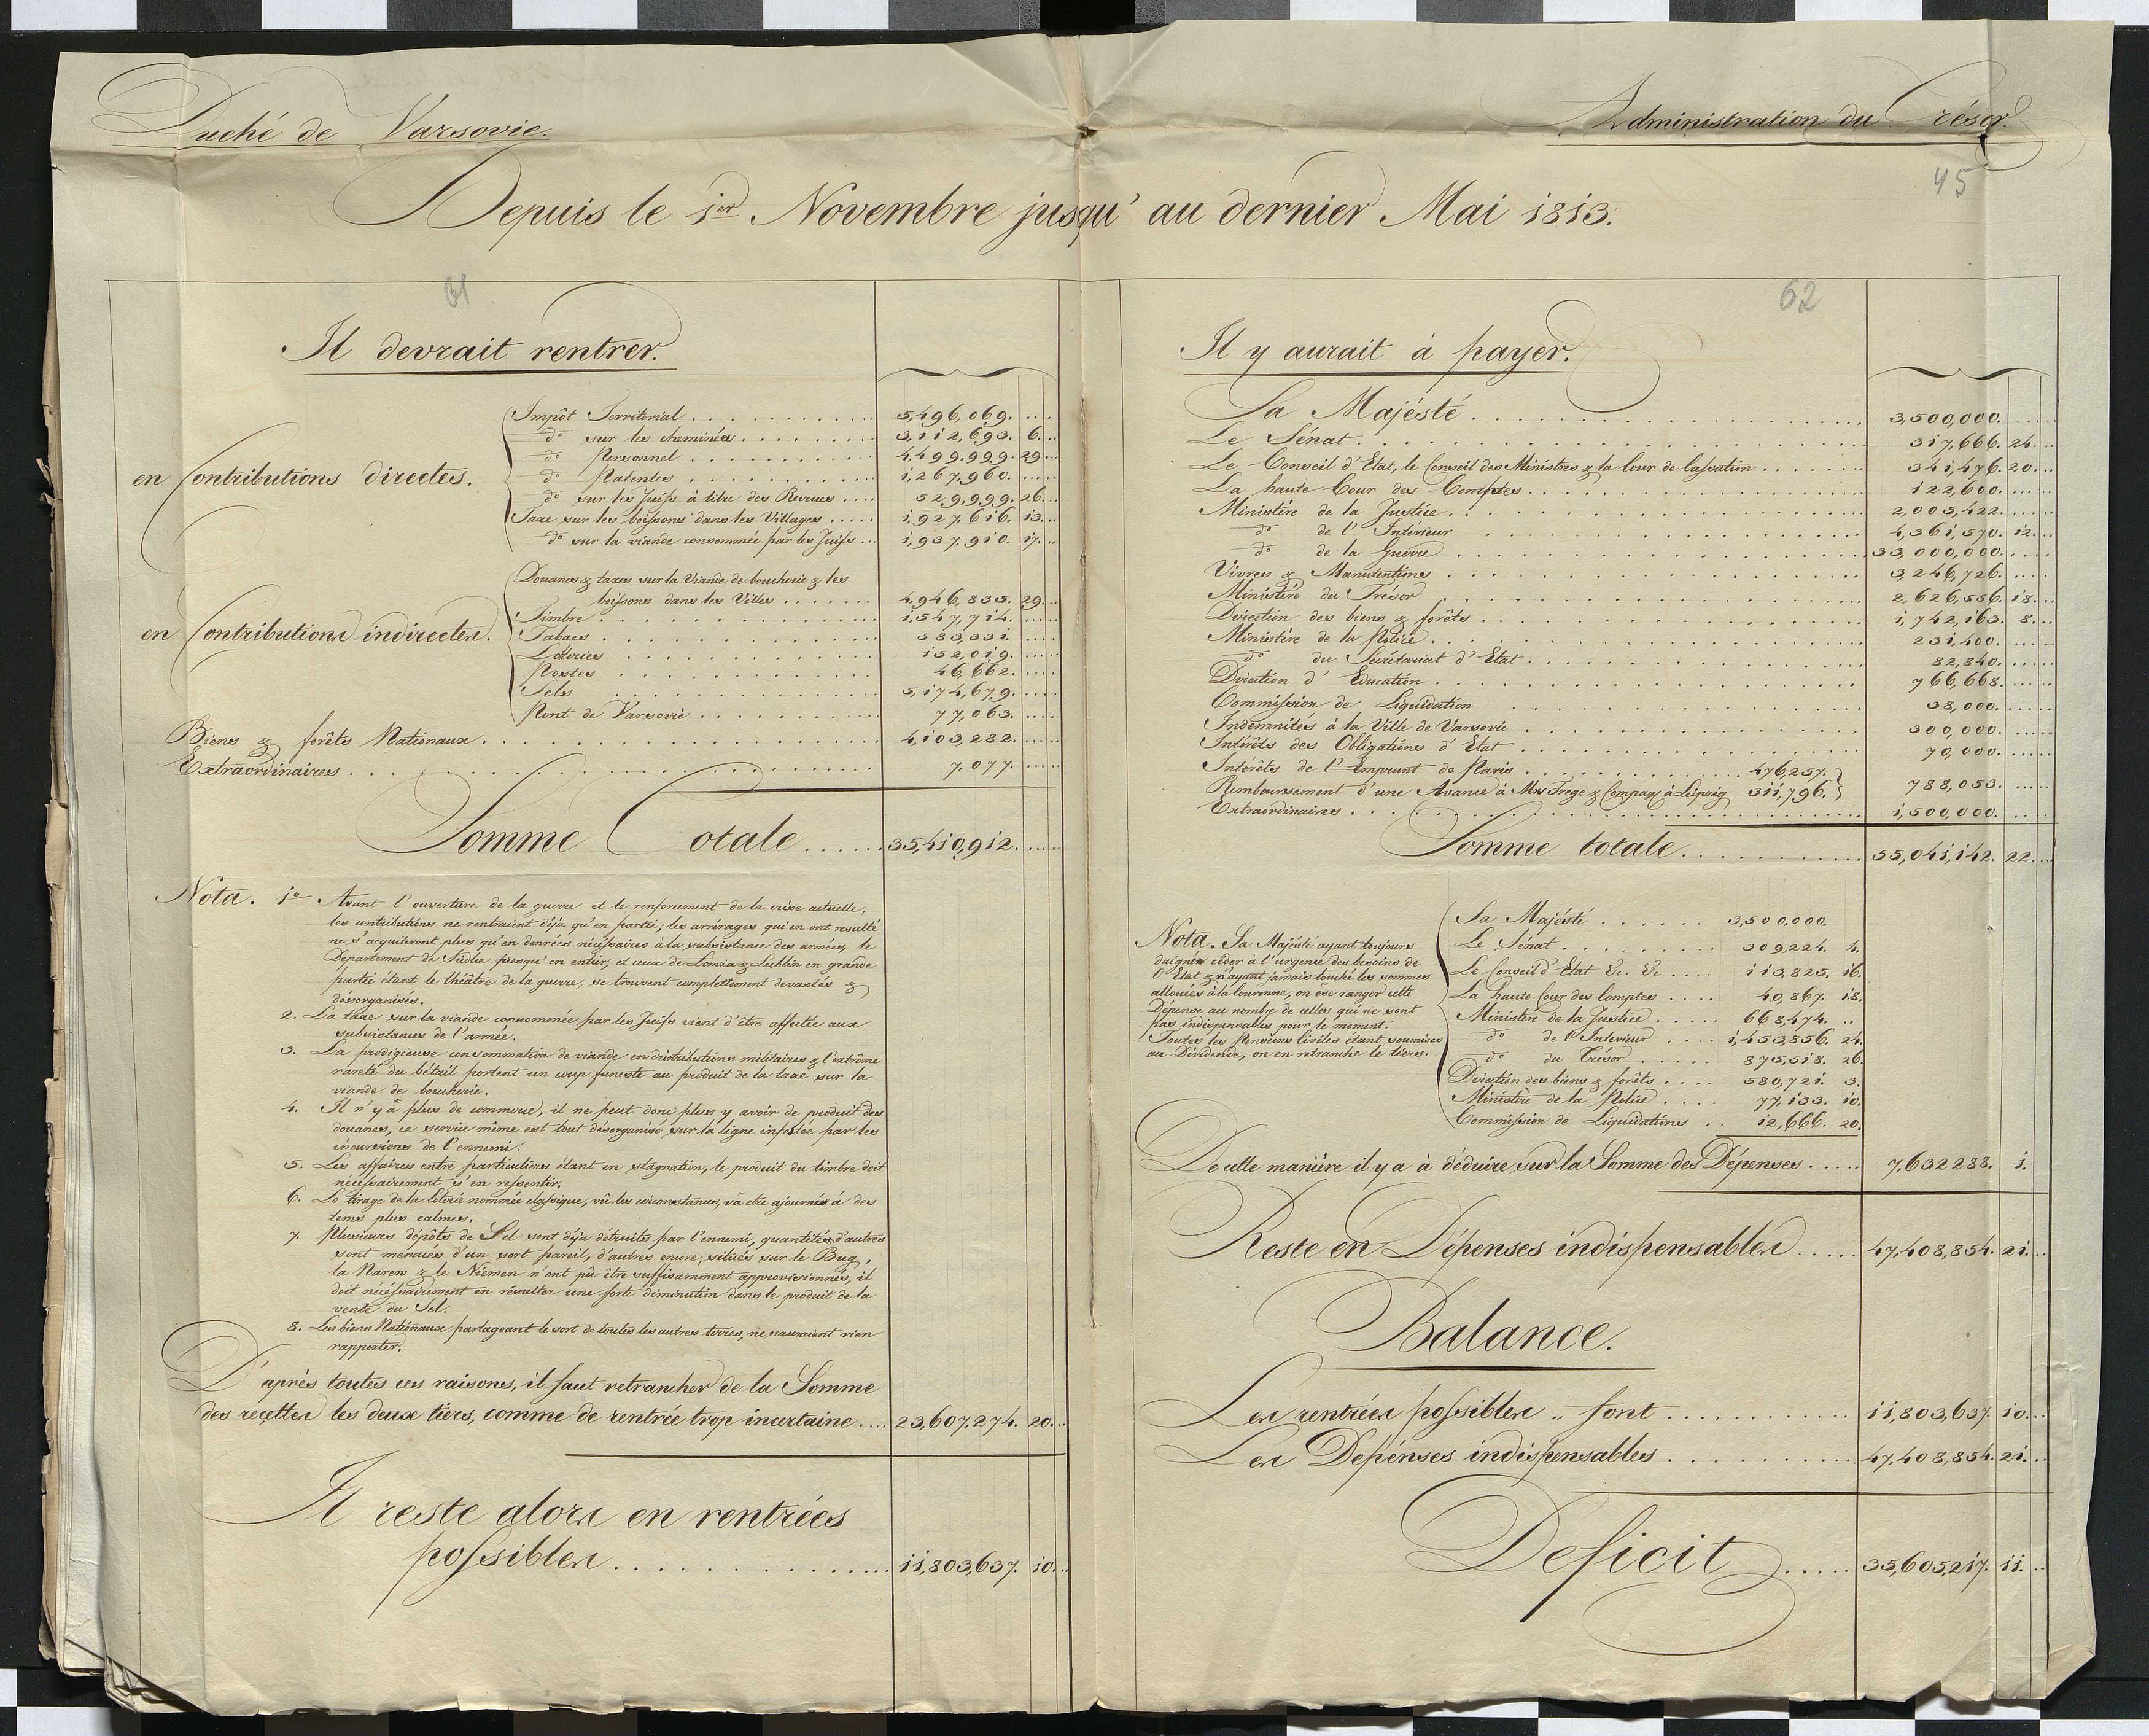 Duché de Varsovie.
Administration du Trésor.
45
Depuis le 1er Novembre jusqu'au dernier Mai 1813.
61
Il devrait rentrer.
en Contributions directes.
Impôt Territorial . . . 5,496,069. ...
do sur les cheminées . . . 3,112,693. 6...
do Personnel . . . 4,499,999. 29...
do Patentes . . . 1,267,960. ...
do sur les Juifs à titre des Recrues . . . 529,999. 26...
Taxe sur les boissons dans les Villages . . . 1,927,616. 13...
do sur la viande consommée par les Juifs . . . 1,937,910. 17...
en Contributions indirectes.
Douanes & taxes sur la Viande de boucherie & les
boissons dans les Villes . . . 4,946,835. 29...
Timbre . . . 1,547,714. ...
Tabacs . . . 583,331. ...
Lotteries . . . 152,019. ...
Postes . . . 46,662. ...
Sels . . . 5,174,679. ...
Pont de Varsovie . . . 77,063. ...
Biens & forêts Nationaux . . . 4,103,282. ...
Extraordinaires . . . 7,077. ...
Somme Totale . . . 35,410,912. ...
Nota. 1o Avant l'ouverture de la guerre et le renforcement de la crise actuelle,
les contributions ne rentraient déja qu'en partie; les arrérages qui en ont resulté
ne s'acquiteront plus qu'en denrées nécéssaires à la subsistance des armées, le
Département de Siedlce presqu'en entier, et ceux de Lomza & Lublin en grande
partie étant le théâtre de la guerre, se trouvent complettement devastés &
désorganisés.
2. La taxe sur la viande consommée par les Juifs vient d'être affectée aux
subsistances de l'armée.
3. La prodigieuse consommation de viande en distributions militaires & l'extrême
rareté du bétail portent un coup funeste au produit de la taxe sur la
viande de boucherie.
4. Il n'y a plus de commerce, il ne peut donc plus y avoir de produit des
douanes, ce service même est tout désorganisé sur la ligne infestée par les
incursions de l'ennemi.
5. Les affaires entre particuliers étant en stagnation, le produit du timbre doit
nécéssairement s'en ressentir.
6. Le tirage de la Loterie nommée classique, vû les circonstances, va être ajourné à des
tems plus calmes.
7. Plusieurs dépôts de Sel sont déja détruits par l'ennemi, quantités d'autres
sont menacés d'un sort pareil, d'autres encore, situés sur le Bug,
la Narew & le Niemen n'ont pû être suffisamment approvisionnés, il
doit nécéssairement en résulter une forte diminution dans le produit de la
vente du Sel.
8. Les biens Nationaux partageant le sort de toutes les autres terres, ne sauraient rien
rapporter.
D'après toutes ces raisons, il faut retrancher de la Somme
des recettes les deux tiers, comme de rentrée trop incertaine . . . 23,607,274. 20...
Il reste alors en rentrées
possibles . . . 11,803,637. 10...
62
Il y aurait à payer.
Sa Majésté . . . 3,500,000. ...
Le Sénat . . . 317,666. 24...
Le Conseil d'Etat, le Conseil des Ministres & la Cour de Cassation . . . 341,476. 20...
La haute Cour des Comptes . . . 122,600. ...
Ministère de la Justice . . . 2,005,422. ...
do de l'Intérieur . . . 4,361,570. 12...
do de la Guerre . . . 33,000,000. ...
Vivres & Manutentions . . . 3,246,726. ...
Ministère du Trésor . . . 2,626,556. 18...
Direction des biens & forêts . . . 1,742,163. 8...
Ministère de la Police . . . 231,400. ...
do du Secrétariat d'Etat . . . 82,840. ...
Direction d'Education . . . 766,668. ...
Commission de Liquidation . . . 38,000. ...
Indemnités à la Ville de Varsovie . . . 300,000. ...
Intérêts des Obligations d'Etat . . . 70,000. ...
Intérêts de l'Emprunt de Paris . . . 476,257.
Remboursement d'une Avance à Mrs Frege & Compag à Leipzig 311,796. 788,053. ...
Extraordinaires . . . 1,500,000. ...
Somme totale . . . 55,041,142. 22...
Nota. Sa Majésté ayant toujours
daigné céder à l'urgence des besoins de
l'Etat & n'ayant jamais touché les sommes
allouées à la Couronne, on ôse ranger cette
Dépense au nombre de celles qui ne sont
pas indispensables pour le moment.
Toutes les Pensions Civiles étant soumises
au Dividende, on en retranche le tiers.
Sa Majésté . . . 3,500,000.
Le Sénat . . . 309,224. 4.
Le Conseil d'Etat &c. &c . . . 113,825. 16.
La haute Cour des Comptes . . . 40,867. 18.
Ministère de la Justice . . . 668,474. ..
do de l'Interieur . . . 1,453,856. 24.
do du Trésor . . . 875,518. 26.
Direction des biens & forêts . . . 580,721. 3.
Ministère de la Police . . . 77,133. 10.
Commission de Liquidations . . 12,666. 20.
De cette manière il y a à déduire sur la Somme des Dépenses . . . 7,632288. 1.
Reste en Dépenses indispensables . . . 47,408,854. 21...
Balance.
Les rentrées possibles .. sont . . . 11,803,637. 10...
Les Depénses indispensables . . . 47,408,854. 21...
Deficit . . . 35,605,217. 11...